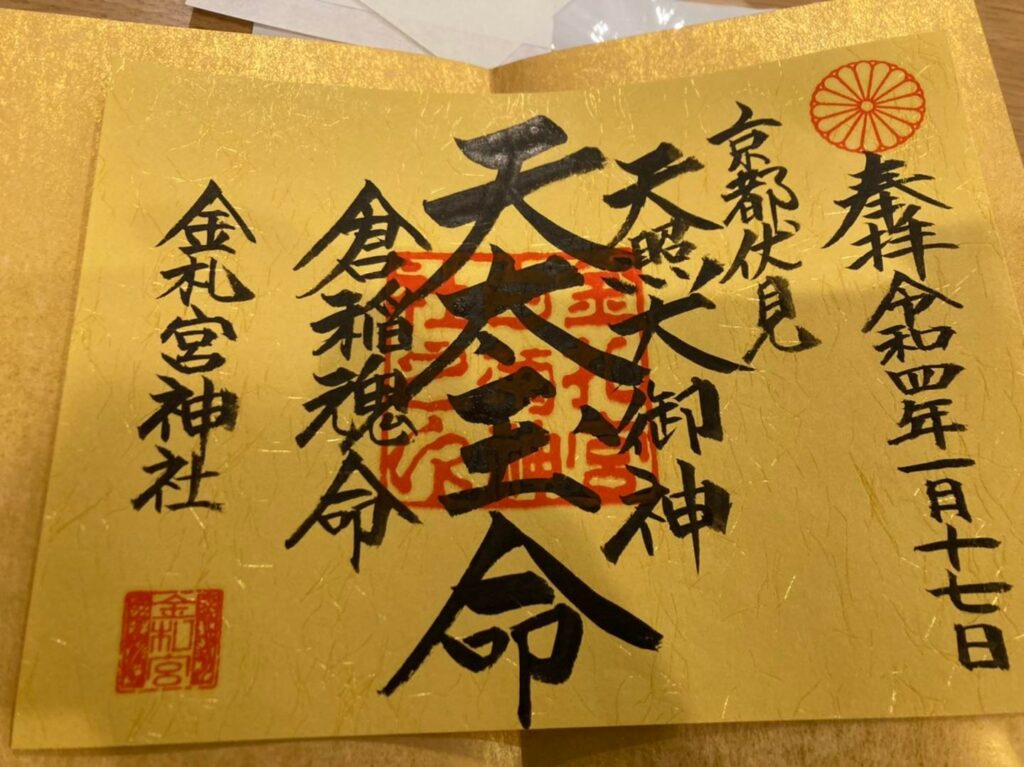 奉拝 令和四年一月十七日
京都伏見
天照大御神
天太玉命
倉稲魂命
金札宮神社
金札宮